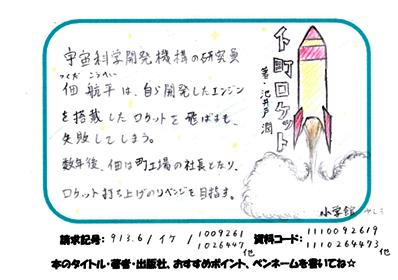 下町ロケット
著・池井戸 潤
宇宙科学開発機構の研究員
つくだ こうへい
佃 航平は、自ら開発したエンジン
を搭載したロケットを飛ばすも、
失敗してしまう。
数年後、佃は町工場の社長となり、
ロケット打ち上げのリベンジを目指す。
小学館
請求記号: 913.6/イケ/1009261
1026447 他
資料コード: 1110092619
1110264473 他
本のタイトル・著者・出版社、おすすめポイント、ペンネームを書いてね☆